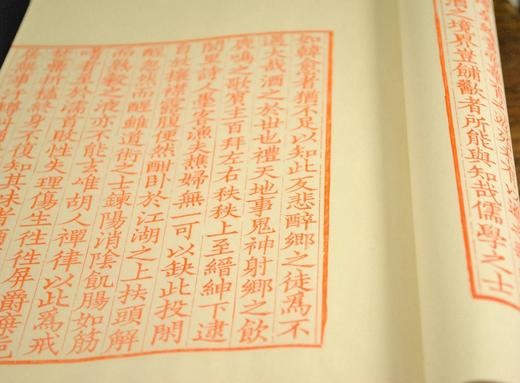 酒之境界豈餔歠者所能與知哉儒學之士
如韓愈者猶不足以知此反悲醉鄉之徒爲不
遇大哉酒之於世也禮天地事鬼神射鄉之飲
鹿鳴之歌賓主百拜左右秩秩上至縉紳下逮
閭里詩人墨客漁夫樵婦無一可以缺此投閑
自放攘襟露腹便然酣臥於江湖之上扶頭解
酲忽然而醒雖道術之士鍊陽消陰飢腸如筋
而熟穀之液亦不能去唯胡人禪律以此爲戒
嗜者至於濡首敗性失理傷生往往屏爵棄卮
焚罍折榼終身不復知其味者